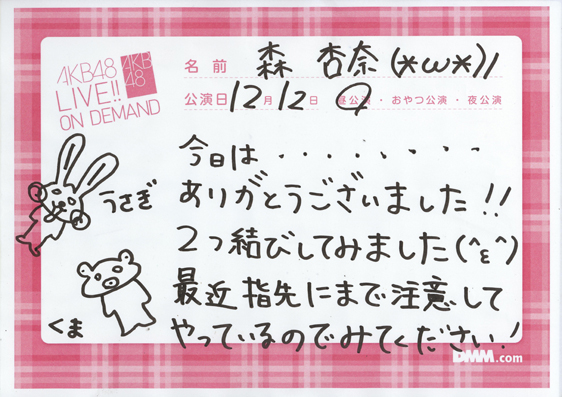 AKB48
LIVE!!
ON DEMAND
AKB
48
名前 森 杏奈(*ω*)//
公演日 12月12日 昼公演・おやつ公演・夜公演
今日は・・・・・・・・
ありがとうございました!!
うさぎ
2つ結びしてみました(^ε^)
最近指先にまで注意して
くま
やっているのでみてください!
DMM.com